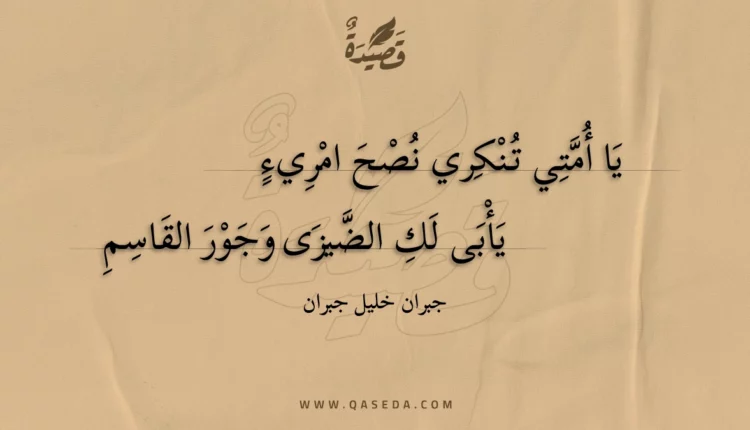 قَصِيدَةٌ
يَا أُمَّتِي تُنْكِرِي نُصْحَ امْرِيءٍ
يَأْبَى لَكِ الضَّيزَى وَجَوْرَ القَاسِمِ
جبران خليل جبران
WWW.QASEDA.COM